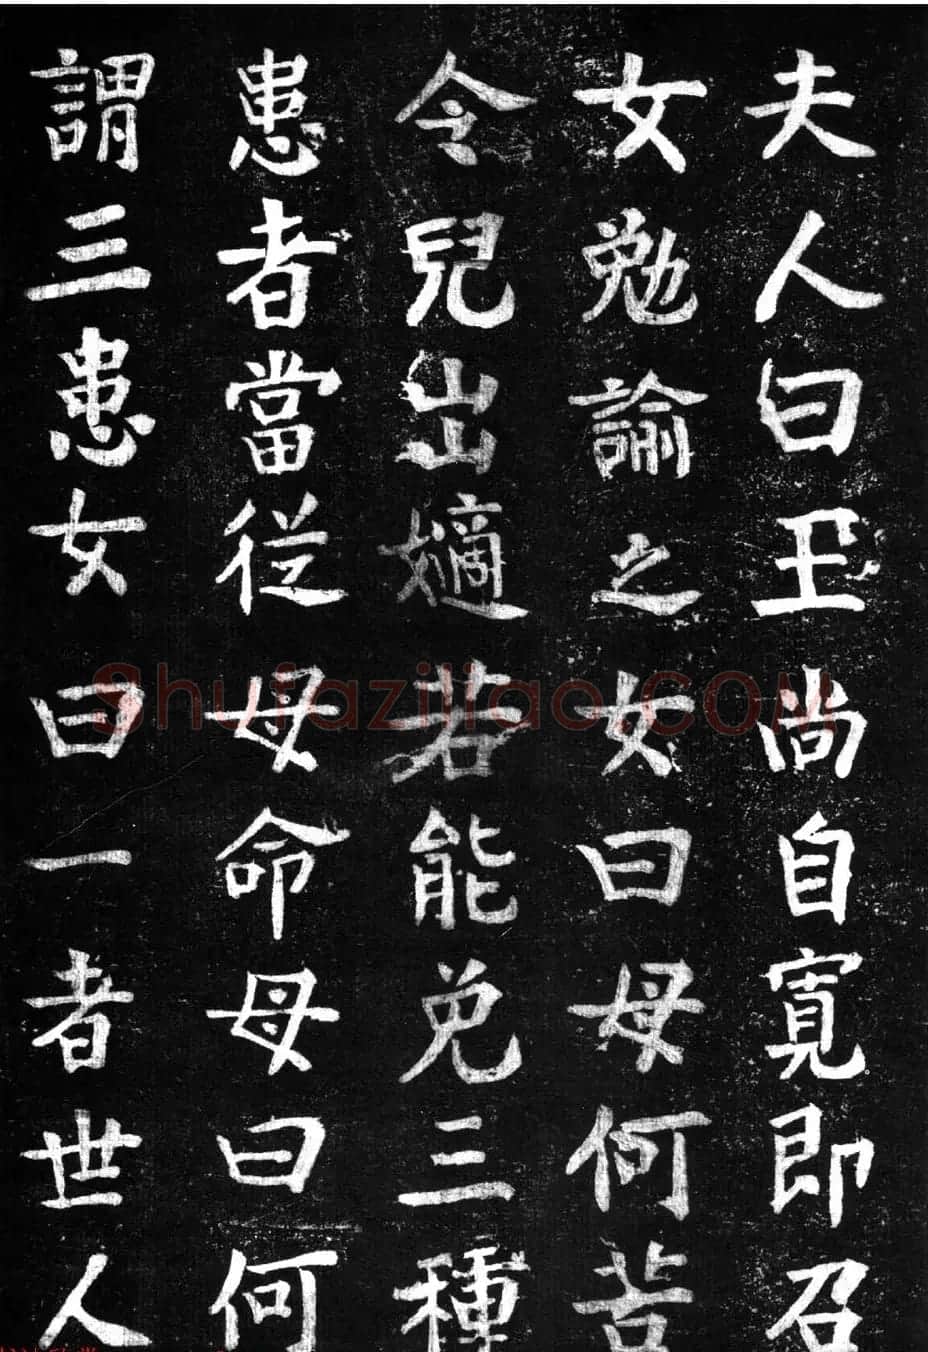 夫人曰王尚自寬即召
女勉諭之女曰母何苦
令兒出嫡若能免三種
患者當從母命母曰何
謂三患女曰一者世人
Shufaziliao.COM